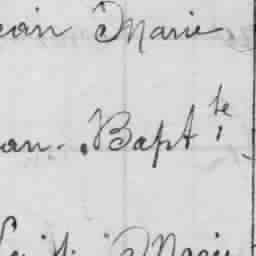 ean Marie
an - Bapt te
Marie